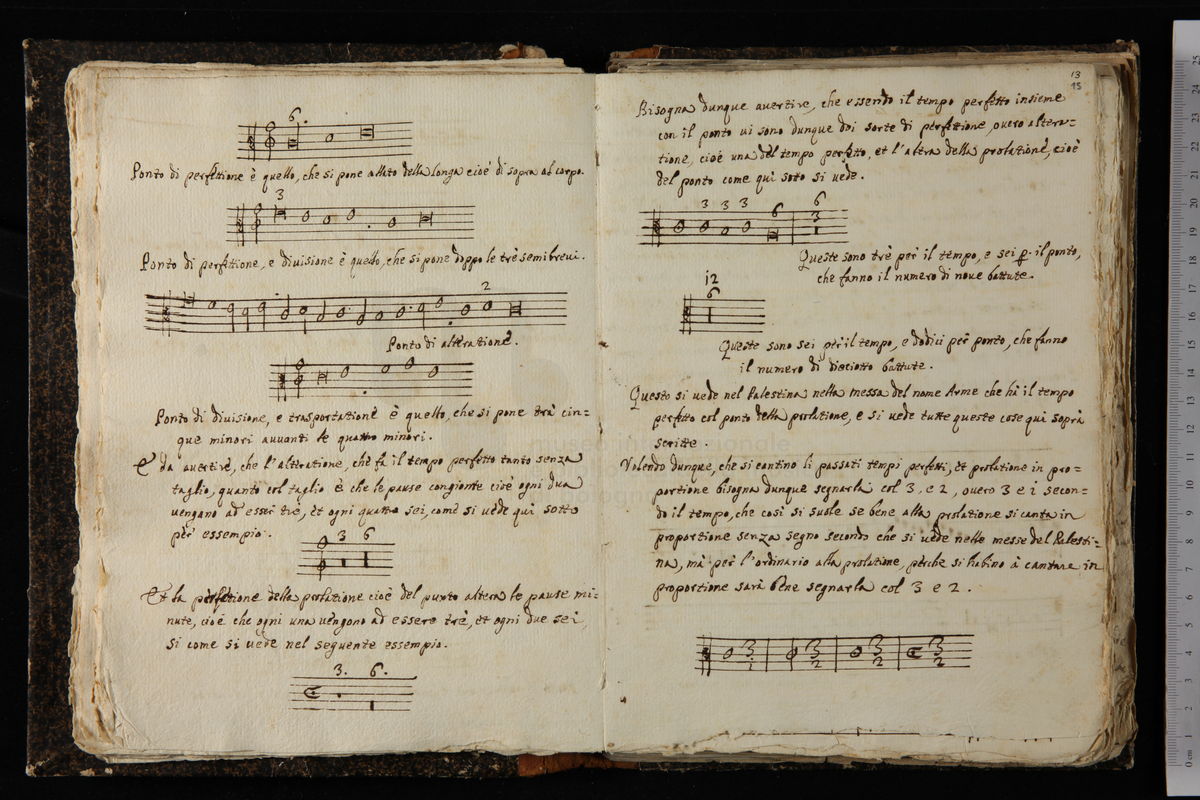 6.
Ponto di perfettione è quello, che si pone allato della longa cioè di sopra al corpo.
3
Ponto di perfettione, e diuisione è quello, che si pone doppo le trè semibreui.
2
Ponto di alteratione.
Ponto di diuisione, e trasportatione è quello, che si pone trà cin=
que minori auuanti le quattro minori.
E da auertire, che l'alteratione, che fà il tempo perfetto tanto senza
taglio, quanto col taglio è che le pause congionte cioè ogni dua
uengano ad esser trè, et ogni quattro sei, come si uede quì sotto
per essempio.
3 6
Et la perfettione della prolatione cioè del punto altera le pause mi=
nute, cioè che ogni una uengono ad essere trè, et ogni due sei,
si come si uede nel seguente essempio.
3. 6.
13
15
Bisogna dunque auertire, che essendo il tempo perfetto insieme
con il ponto ui sono dunque doi sorte di perfettione, ouero altera=
tione, cioè una del tempo perfetto, et l'altra della prolatione, cioè
del ponto come quì soto si uede.
3 3 3 6 6
3
Queste sono trè per il tempo, e sei p. il ponto,
che fanno il numero di noue battute.
12
6
Queste sono sei per il tempo, e dodici per ponto, che fanno
il numero di dieciotto battute.
Questo si uede nel Palestina nella messa del nome Arme che hà il tempo
perfetto col ponto della prolatione, e si uede tutte queste cose quì soprà
scritte.
Volendo dunque, che si cantino li passati tempi perfetti, et prolatione in pro=
portione bisogna dunque segnarla col 3, e 2, ouero 3 e i secon=
do il tempo, che così si suole se bene alla prolatione si canta in
proportione senza segno secondo che si uede nelle messe del Palesti=
na, mà per l'ordinario alla prolatione, perche si habino à cantare in
proportione sarà bene segnarla col 3 e 2.
3 3 3 3
1 2 2 2